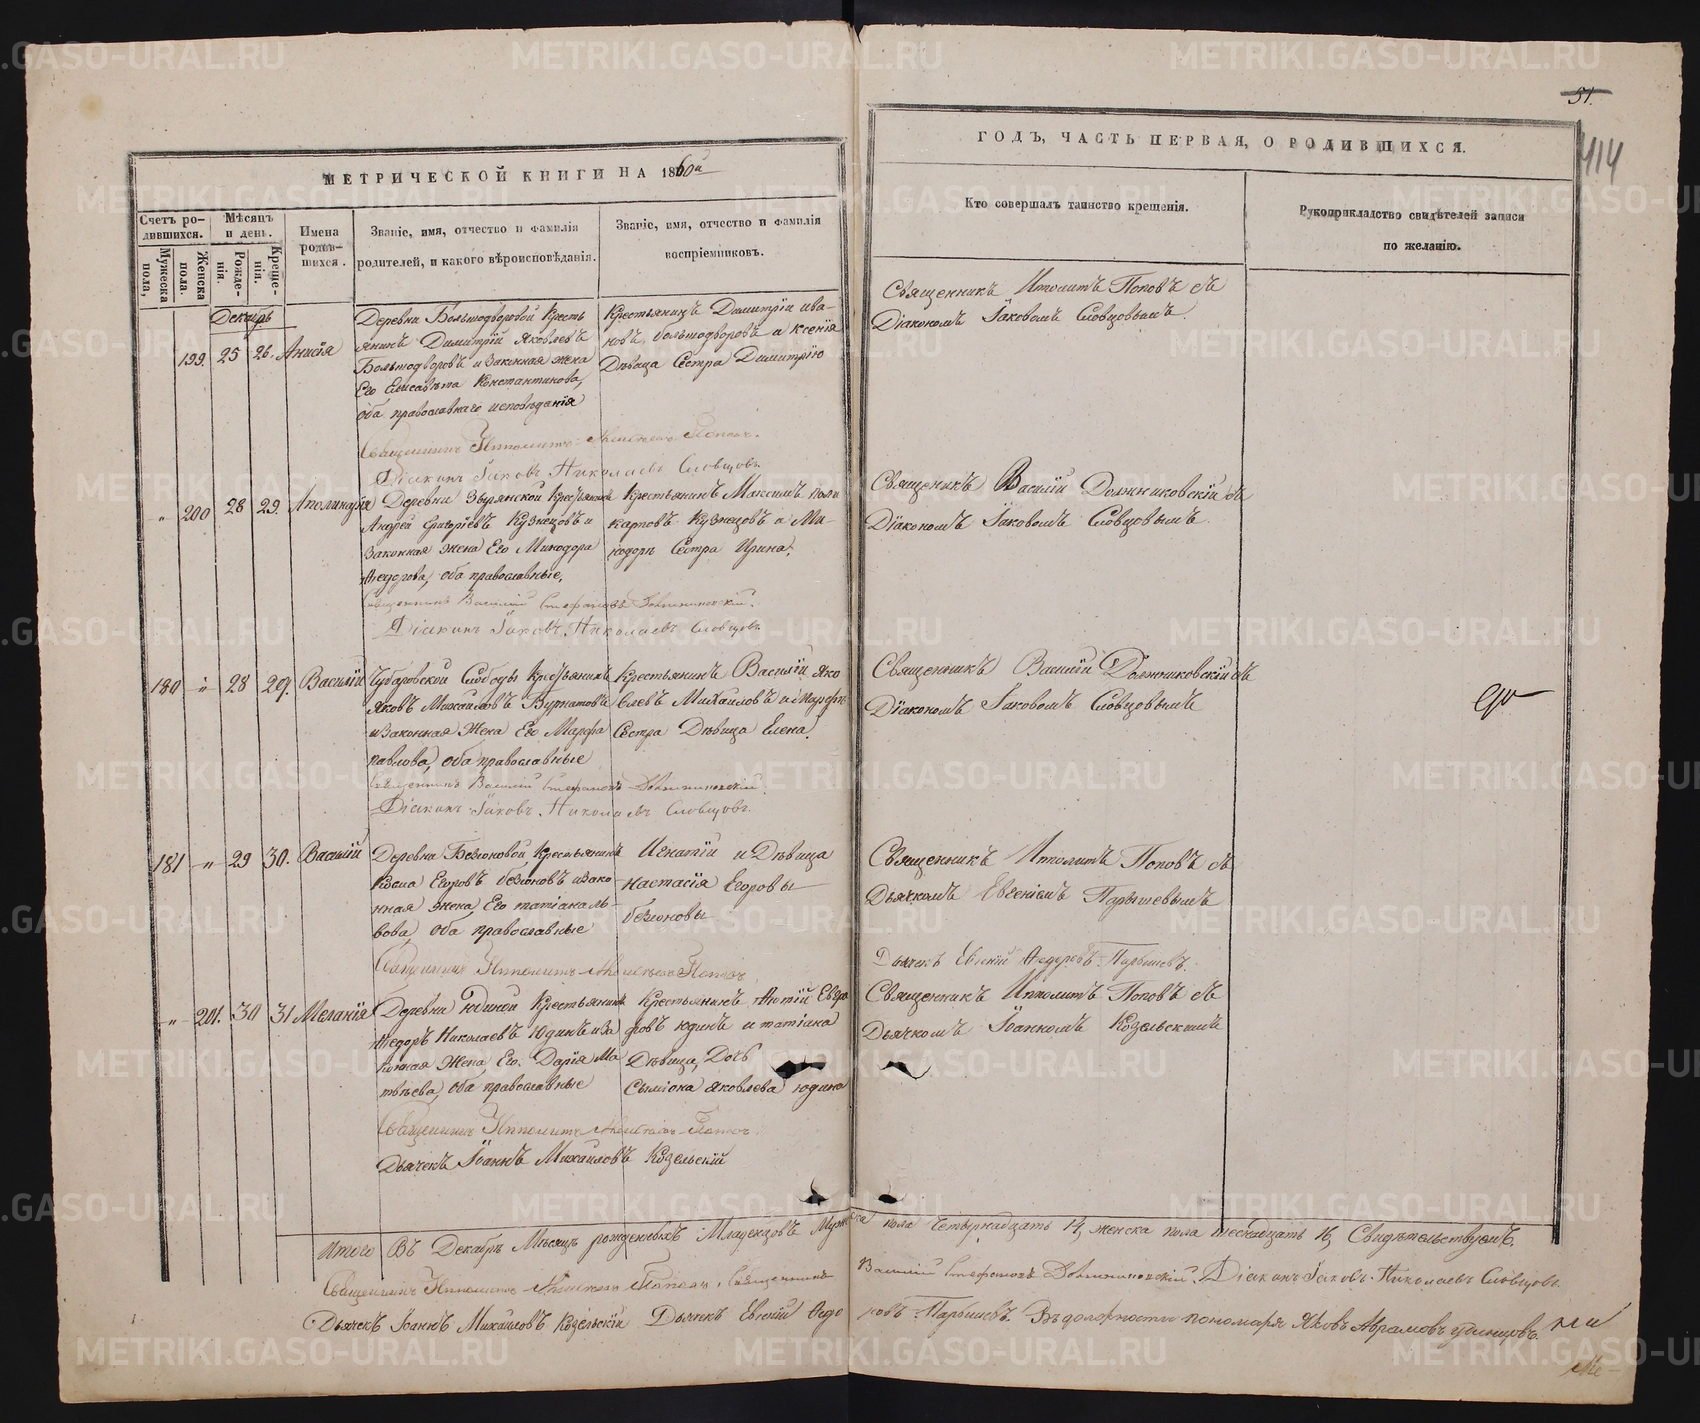 51.
114
МЕТРИЧЕСКОЙ КНИГИ НА 1860й
ГОДЪ, ЧАСТЬ ПЕРВАЯ, О РОДИВШИХСЯ.
Счетъ ро-
дившихся.
Мужеска пола,
Женска пола.
Мѣсяцъ
и день.
Рожде-
нія.
Креще-
нія.
Имена
родив-
шихся.
Званіе, имя, отчество и фамилія
родителей, и какого вѣроисповѣданія.
Званіе, имя, отчество и фамилія
воспріемниковъ.
Кто совершалъ таинство крещенія.
Рукоприкладство свидѣтелей записи
по желанію.
Декабрь
199. 25 26. Анисія
Деревни Большодворовой Кресть
янинъ Димитрій Яковлевъ
Большодворовъ и Законная жена
Его Елисавета Константинова,
оба православнаго исповѣданія
Крестьянинъ Димитрій ива-
новъ, большодворовъ и Ксенія
Дѣвица Сестра Димитрію
Священникъ Иполитъ Поповъ съ
Діакономъ Іаковомъ Словцовымъ.
Священникъ Ипполитъ Поповъ.
Діаконъ Іаковъ Николаевъ Словцовъ.
„ 200 28 29.
Деревни Зырянской Крестьянинъ
Андрей Григорієвъ Кузнецовъ и
Законная жена Его Минодора
Федорова, оба православные,
Крестьянинъ Максимъ поли
карповъ Кузнецовъ и Ми-
нодоры Сестра Ирина.
Священикъ Василій Должниковскій съ
Діакономъ Іаковомъ Словцовымъ.
Священникъ Василій Стефановъ Должниковскій.
Діаконъ Іаковъ Николаевъ Словцовъ.
180 „ 28 29. Василій
Чубаровской Слободы Крестьянинъ
Яковъ Михайловъ
и Законная Жена Его Марфа
павлова, оба православные
Крестьянинъ Василій Яко
влевъ Михайловъ и Марфы
Сестра Дѣвица Елена.
Священникъ Василій Должниковскій съ
Діакономъ Іаковомъ Словцовымъ
Священникъ Василій Стефановъ Должниковскій.
Діаконъ Іаковъ Николаевъ Словцовъ.
181 „ 29 30. Василій
Деревни Крестьянинъ
Козма Егоровъ и зако
нная жена Его татіана ль
вова, оба православные
Игнатій и Дѣвица
настасія Егоровы
Священникъ Иполитъ Поповъ съ
Дьячкомъ Евгеніемъ Парышевымъ
Священникъ Ипполитъ Поповъ
Дьячекъ Евгеній Федоровъ Парышевъ.
„ 201. 30 31 Меланія
Деревни Юдиной Крестьянинъ
Федоръ Николаевъ Юдинъ и За
конная Жена Его Дарія Ма
твѣева, оба православные
Крестьянинъ
юдинъ и татіана
Дѣвица, Дочь
Сѵміона Яковлева юдина
Священникъ Ипполитъ Поповъ съ
Дьячкомъ Іоанномъ Козельскимъ
Священникъ Ипполитъ Поповъ.
Дьячекъ Іоаннъ Михайловъ Козельскій
Итого Въ Декабрѣ Мѣсяцѣ рожденныхъ Младенцовъ Мужеска пола Четырнадцать 14, женска пола шеснадцать 16, Свидѣтельствуемъ.
Священникъ Ипполитъ Поповъ. Священникъ Василій Стефановъ Должниковскій. Діаконъ Іаковъ Николаевъ Словцовъ.
Дьячекъ Іоаннъ Михайловъ Козельскій Дьячекъ Евгеній Федоровъ Парышевъ. Въ должности пономаря Яковъ Аврамовъ
METRIKI.GASO-URAL.RU